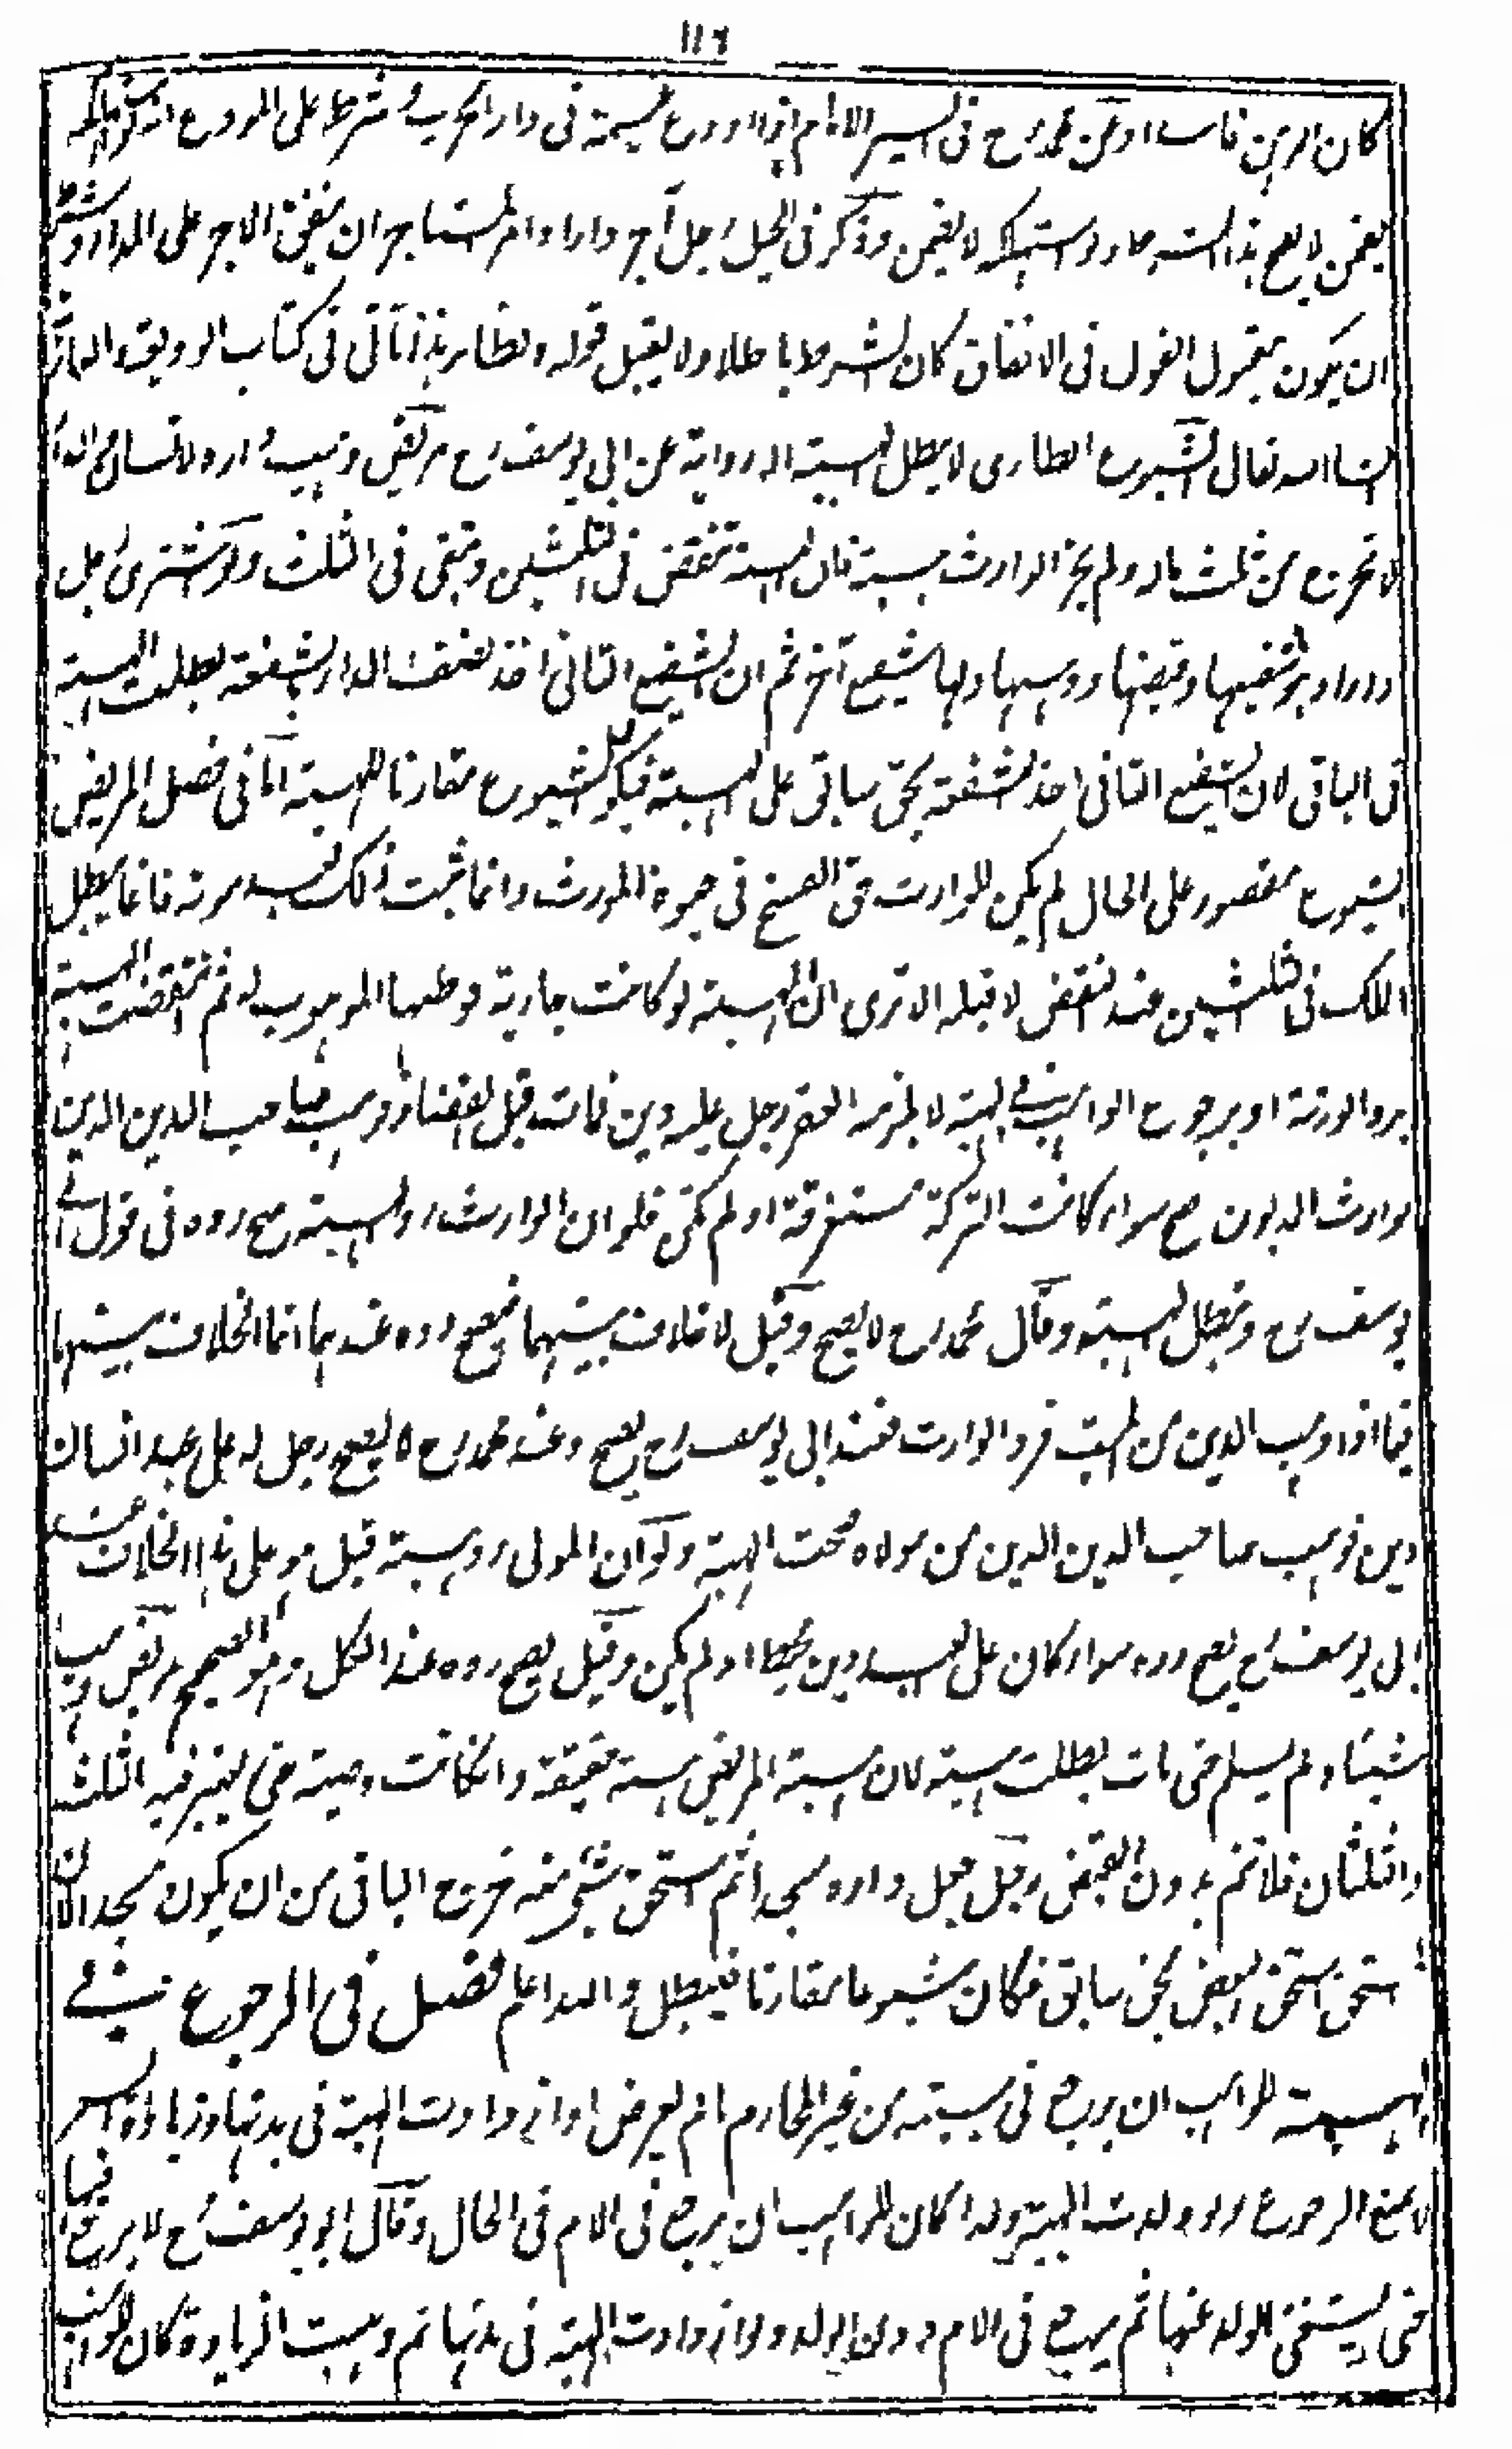 ١١٦
كان الرهن فاسدا وعن محمد رح فى السير الامام اذا اودع غنيمة فى دار الحرب وشرط على المودع ان استهلكه
يضمن لا يصح هذا الشرط ولو استهلكه لا يضمن وذكر فى الحيل رجل آجر دارا وامر المستاجر ان ينفق الاجر على الدار وشرط
ان يكون مقبول القول فى الانفاق كان الشرط باطلا ولا يقبل قوله ونظائر هذا تاتى فى كتاب الوديعة
انشا الله تعالى الشيوع الطارى لا يبطل الهبة الا رواية عن ابى يوسف رح مريض وهب داره لانسان ثم مات
لا تخرج من ثلث ماله ولم يجز الوارث هبته فان الهبة تنتقض فى الثلثين وتبقى فى الثلث ولو اشترى رجل
دارا وهو شفيعها وقبضها ووهبها ولها شفيع آخر ثم ان الشفيع الثانى اخذ نصف الدار بالشفعة بطلت الهبة
فى الباقى لان الشفيع الثانى اخذ بالشفعة بحق سابق على الهبة فيكون الشيوع مقارنا للهبة اما فى فصل المريض
الشيوع مقصور على الحال لم يكن للوارث حق الفسخ فى حيوة المورث وانما ثبت ذلك بعد موته فانما يبطل
الملك فى الثلثين عند النقض لا قبله الا ترى ان الهبة لو كانت جارية فوطئها الموهوب له ثم انتقضت الهبة
برد الورثة او برجوع الواهب فى الهبة لا يلزمه العقر رجل عليه دين فمات قبل القضاء ووهب صاحب الدين الدين
لوارث المديون صح سواء كانت التركة مستغرقة او لم تكن فلو ان الوارث رد الهبة صح رده فى قول ابى
يوسف رح وتبطل الهبة وقال محمد رح لا يصح وقيل لا خلاف بينهما فيصح رده عندهما انما الخلاف بينهما
فيما اذا وهب الدين من الميت فرد الوارث فعند ابى يوسف رح يصح وعند محمد رح لا يصح رجل له على عبد انسان
دين فوهب صاحب الدين الدين من مولاه صحت الهبة ولو ان المولى رد هبته قيل هو على هذا الخلاف عند
ابى يوسف رح يصح رده سواء كان على العبد دين محيط او لم يكن وقيل يصح رده عند الكل وهو الصحيح مريض وهب
شيئا ولم يسلم حتى مات بطلت هبته لان هبة المريض هبة حقيقة وان كانت وصية حتى يعتبر فيه الثلث
والثلثان فلا تتم بدون القبض رجل جعل داره مسجدا ثم استحق شئ منه خرج الباقى من ان يكون مسجدا لان
استحق استحق البعض بحق سابق فكان شيوعا مقارنا فيبطل والله اعلم فصل فى الرجوع فى
الهبة للواهب ان يرجع فى هبته من غير المحارم ما لم يعوض او ازدادت الهبة فى بدنها وزيادة السعر
لا تمنع الرجوع ولو ولدت الهبة ولدا كان للواهب ان يرجع فى الام فى الحال وقال ابو يوسف رح لا يرجع فيها
حتى يستغنى الولد عنها ثم يرجع فى الام دون الولد ولو ازدادت الهبة فى بدنها ثم ذهبت الزيادة كان للواهب